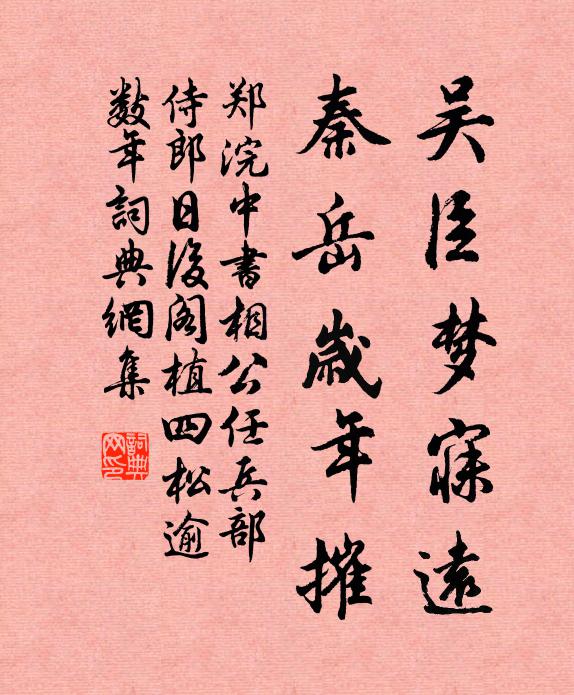 吴臣梦寐远
秦岳岁年摧
郑浣中书相公任兵部
侍郎日后阁植四松逾
数年词典网集
词典网印